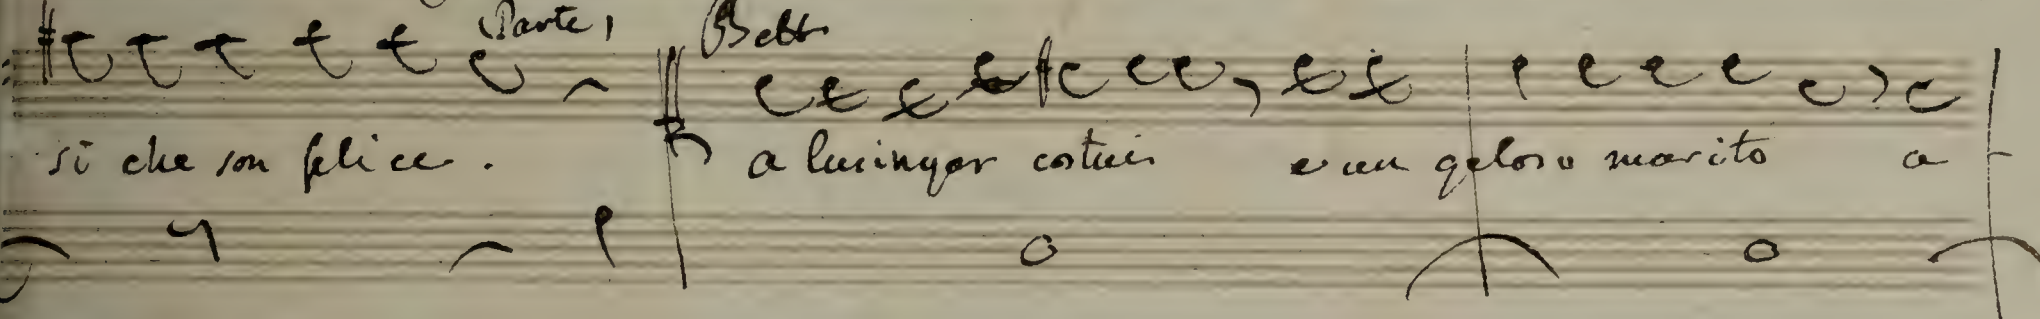 (Parte) Bett
si che son felice. a lusingar costui e un geloso marito a-